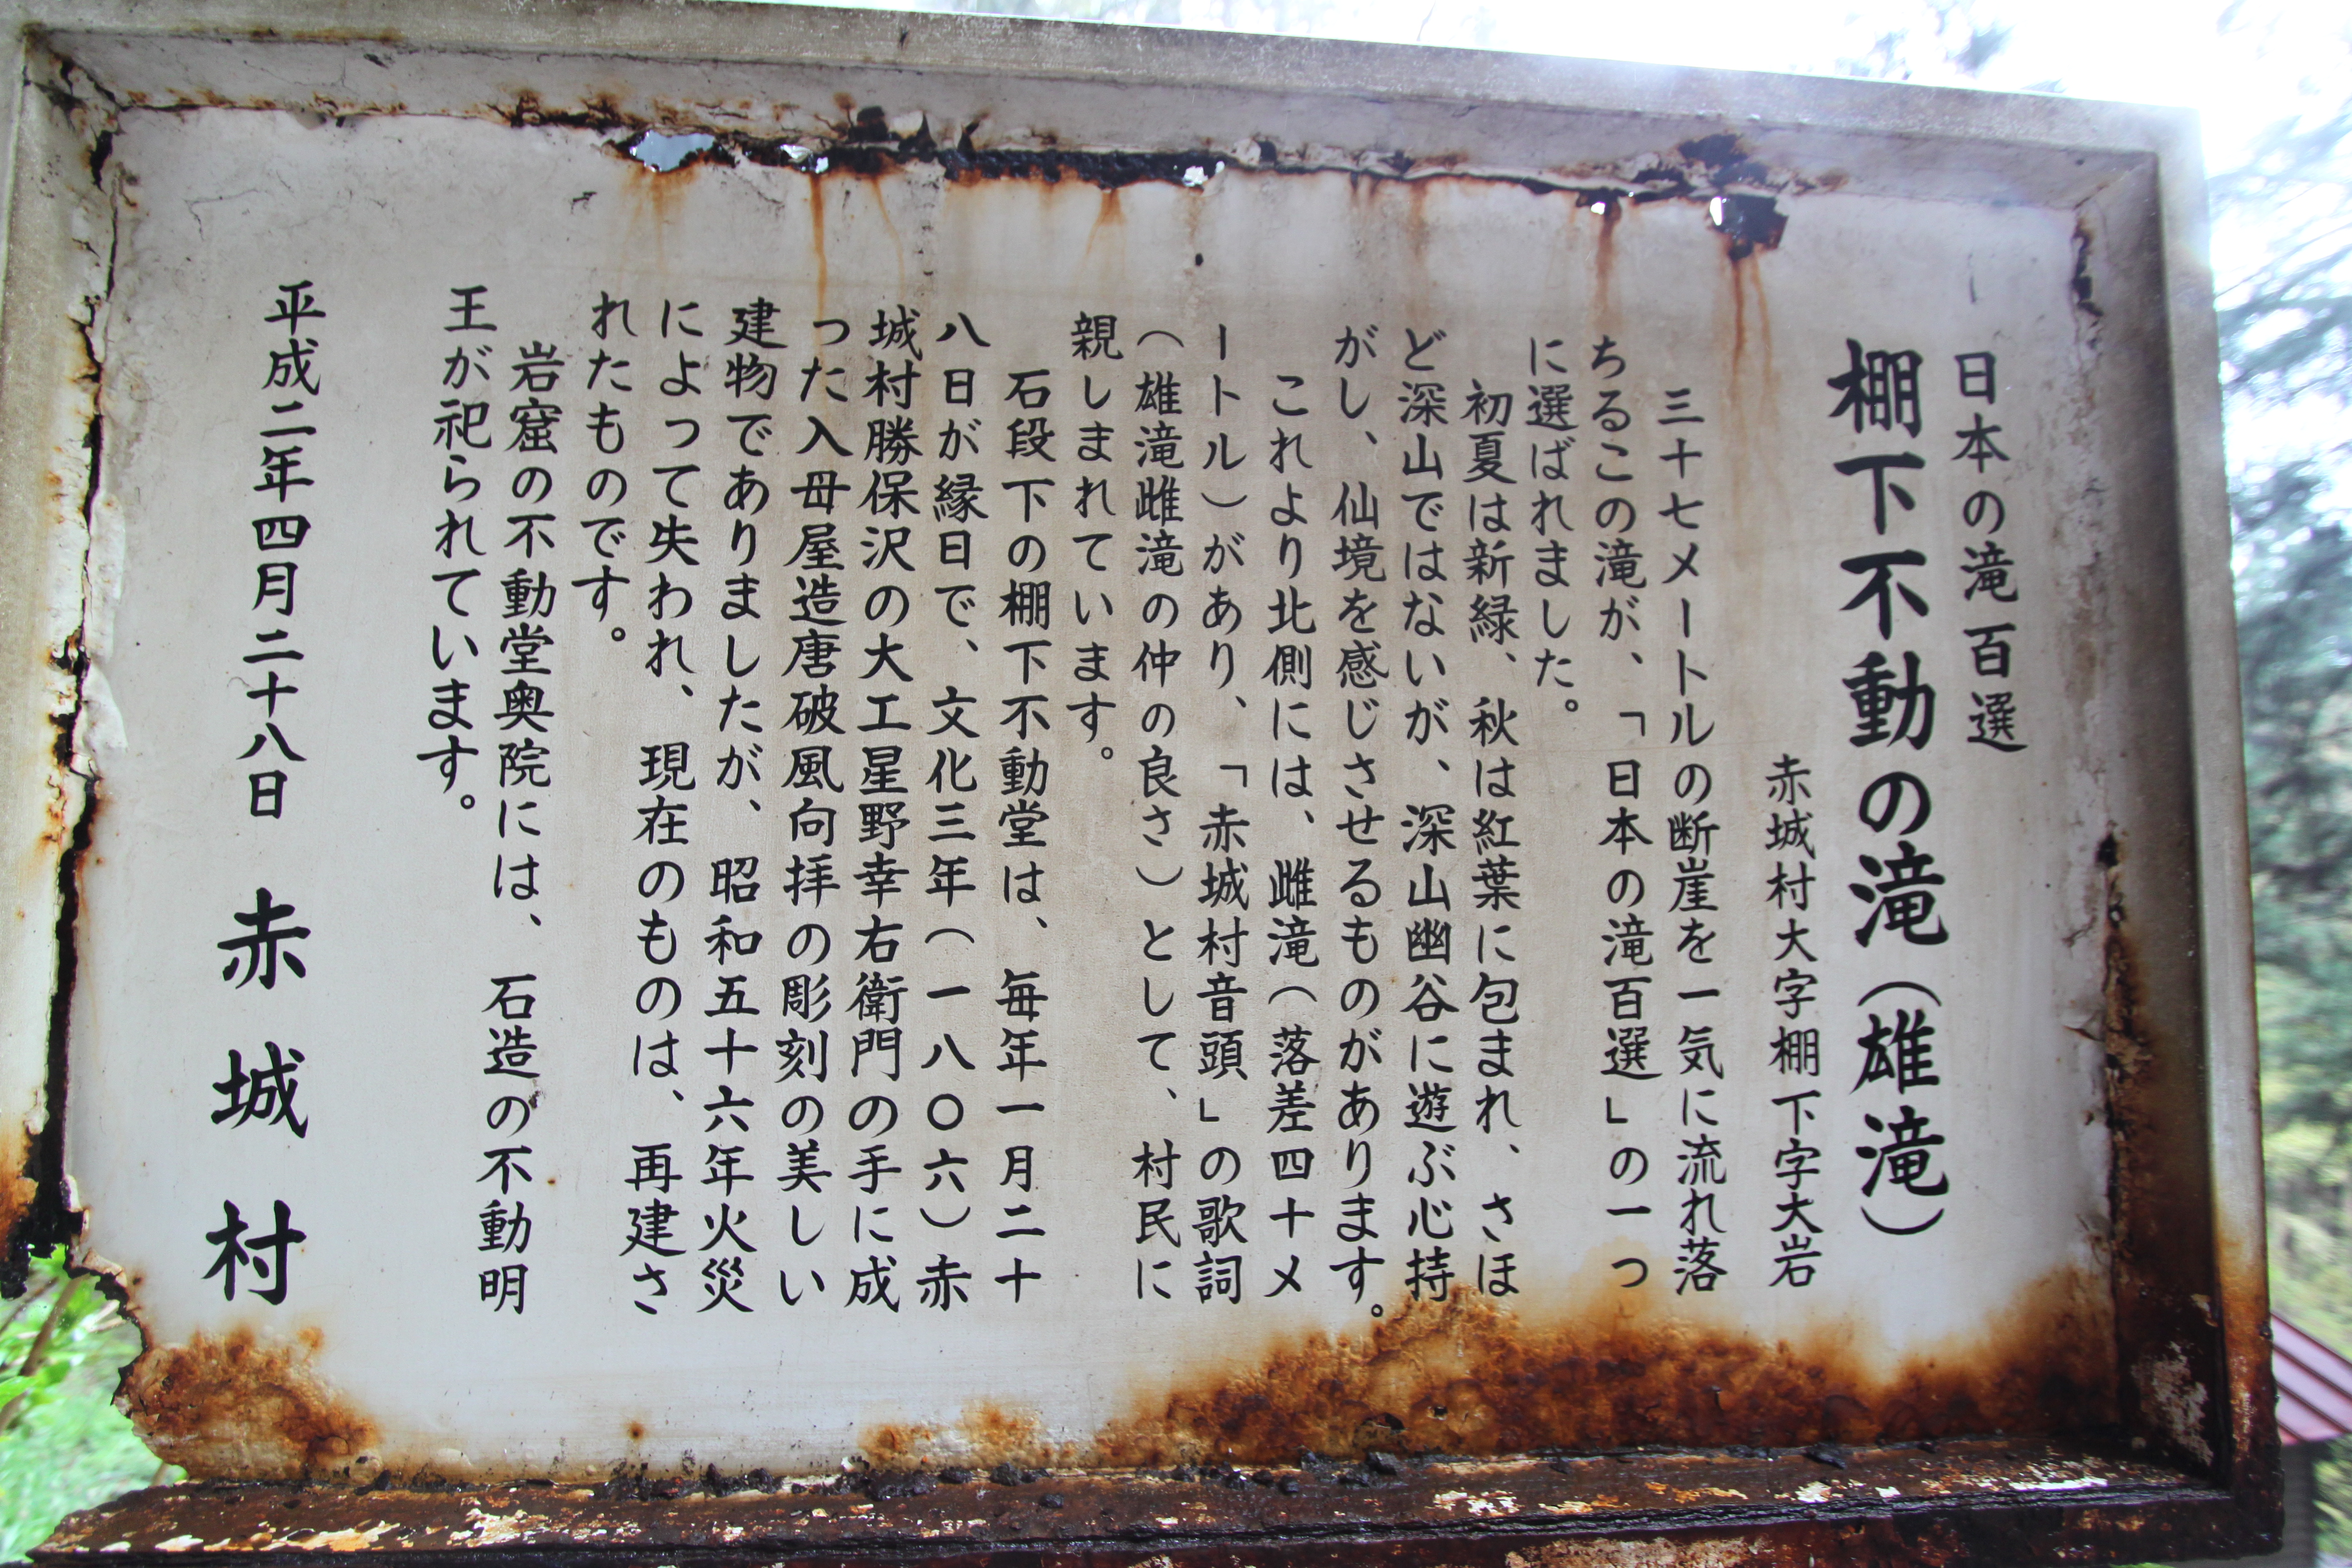 日本の滝百選
棚下不動の滝（雄滝）
赤城村大字棚下字大岩
三十七メートルの断崖を一気に流れ落
ちるこの滝が、「日本の滝百選」の一つ
に選ばれました。
初夏は新緑、秋は紅葉に包まれ、さほ
ど深山ではないが、深山幽谷に遊ぶ心持
がし、仙境を感じさせるものがあります。
これより北側には、雌滝（落差四十メ
ートル）があり、「赤城村音頭」の歌詞
（雄滝雌滝の仲の良さ）として、村民に
親しまれています。
石段下の棚下不動堂は、毎年一月二十
八日が縁日で、文化三年（一八〇六）赤
城村勝保沢の大工星野幸右衛門の手に成
った入母屋造唐破風向拝の彫刻の美しい
建物でありましたが、昭和五十六年火災
によって失われ、現在のものは、再建さ
れたものです。
岩窟の不動堂奥院には、石造の不動明
王が祀られています。
平成二年四月二十八日 赤城村